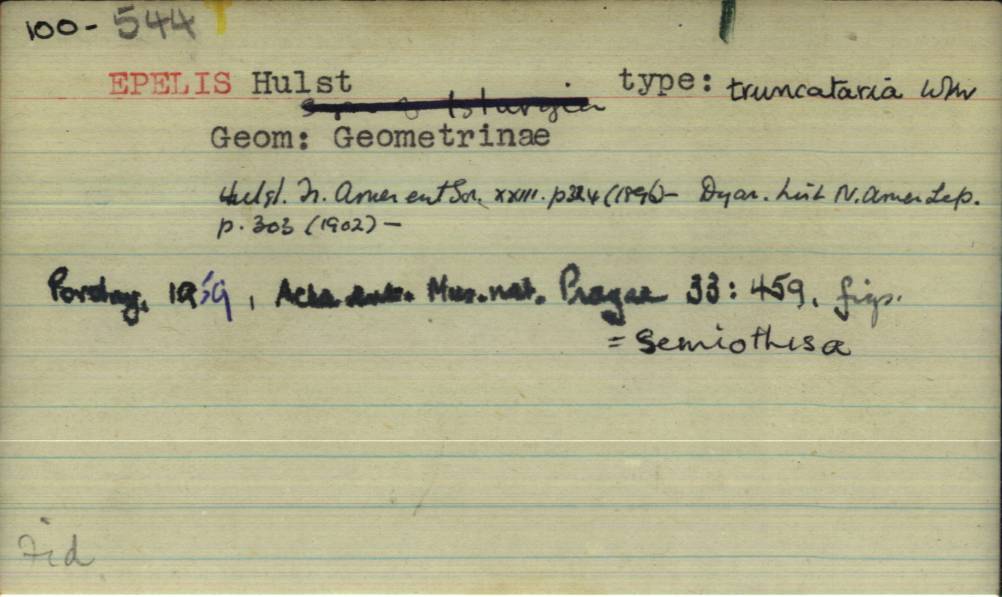 100-544
EPELIS Hulst type: truncataria Wlk
Geom: Geometrinae
Hulst. Tr. Amer ent Soc. XXIII. p324 (1896)— Dyar. List N. Amer Lep.
p. 303 (1902) —
1959, Acta ent. Mus. nat. Pragae 33: 459, figs.
= Semiothisa